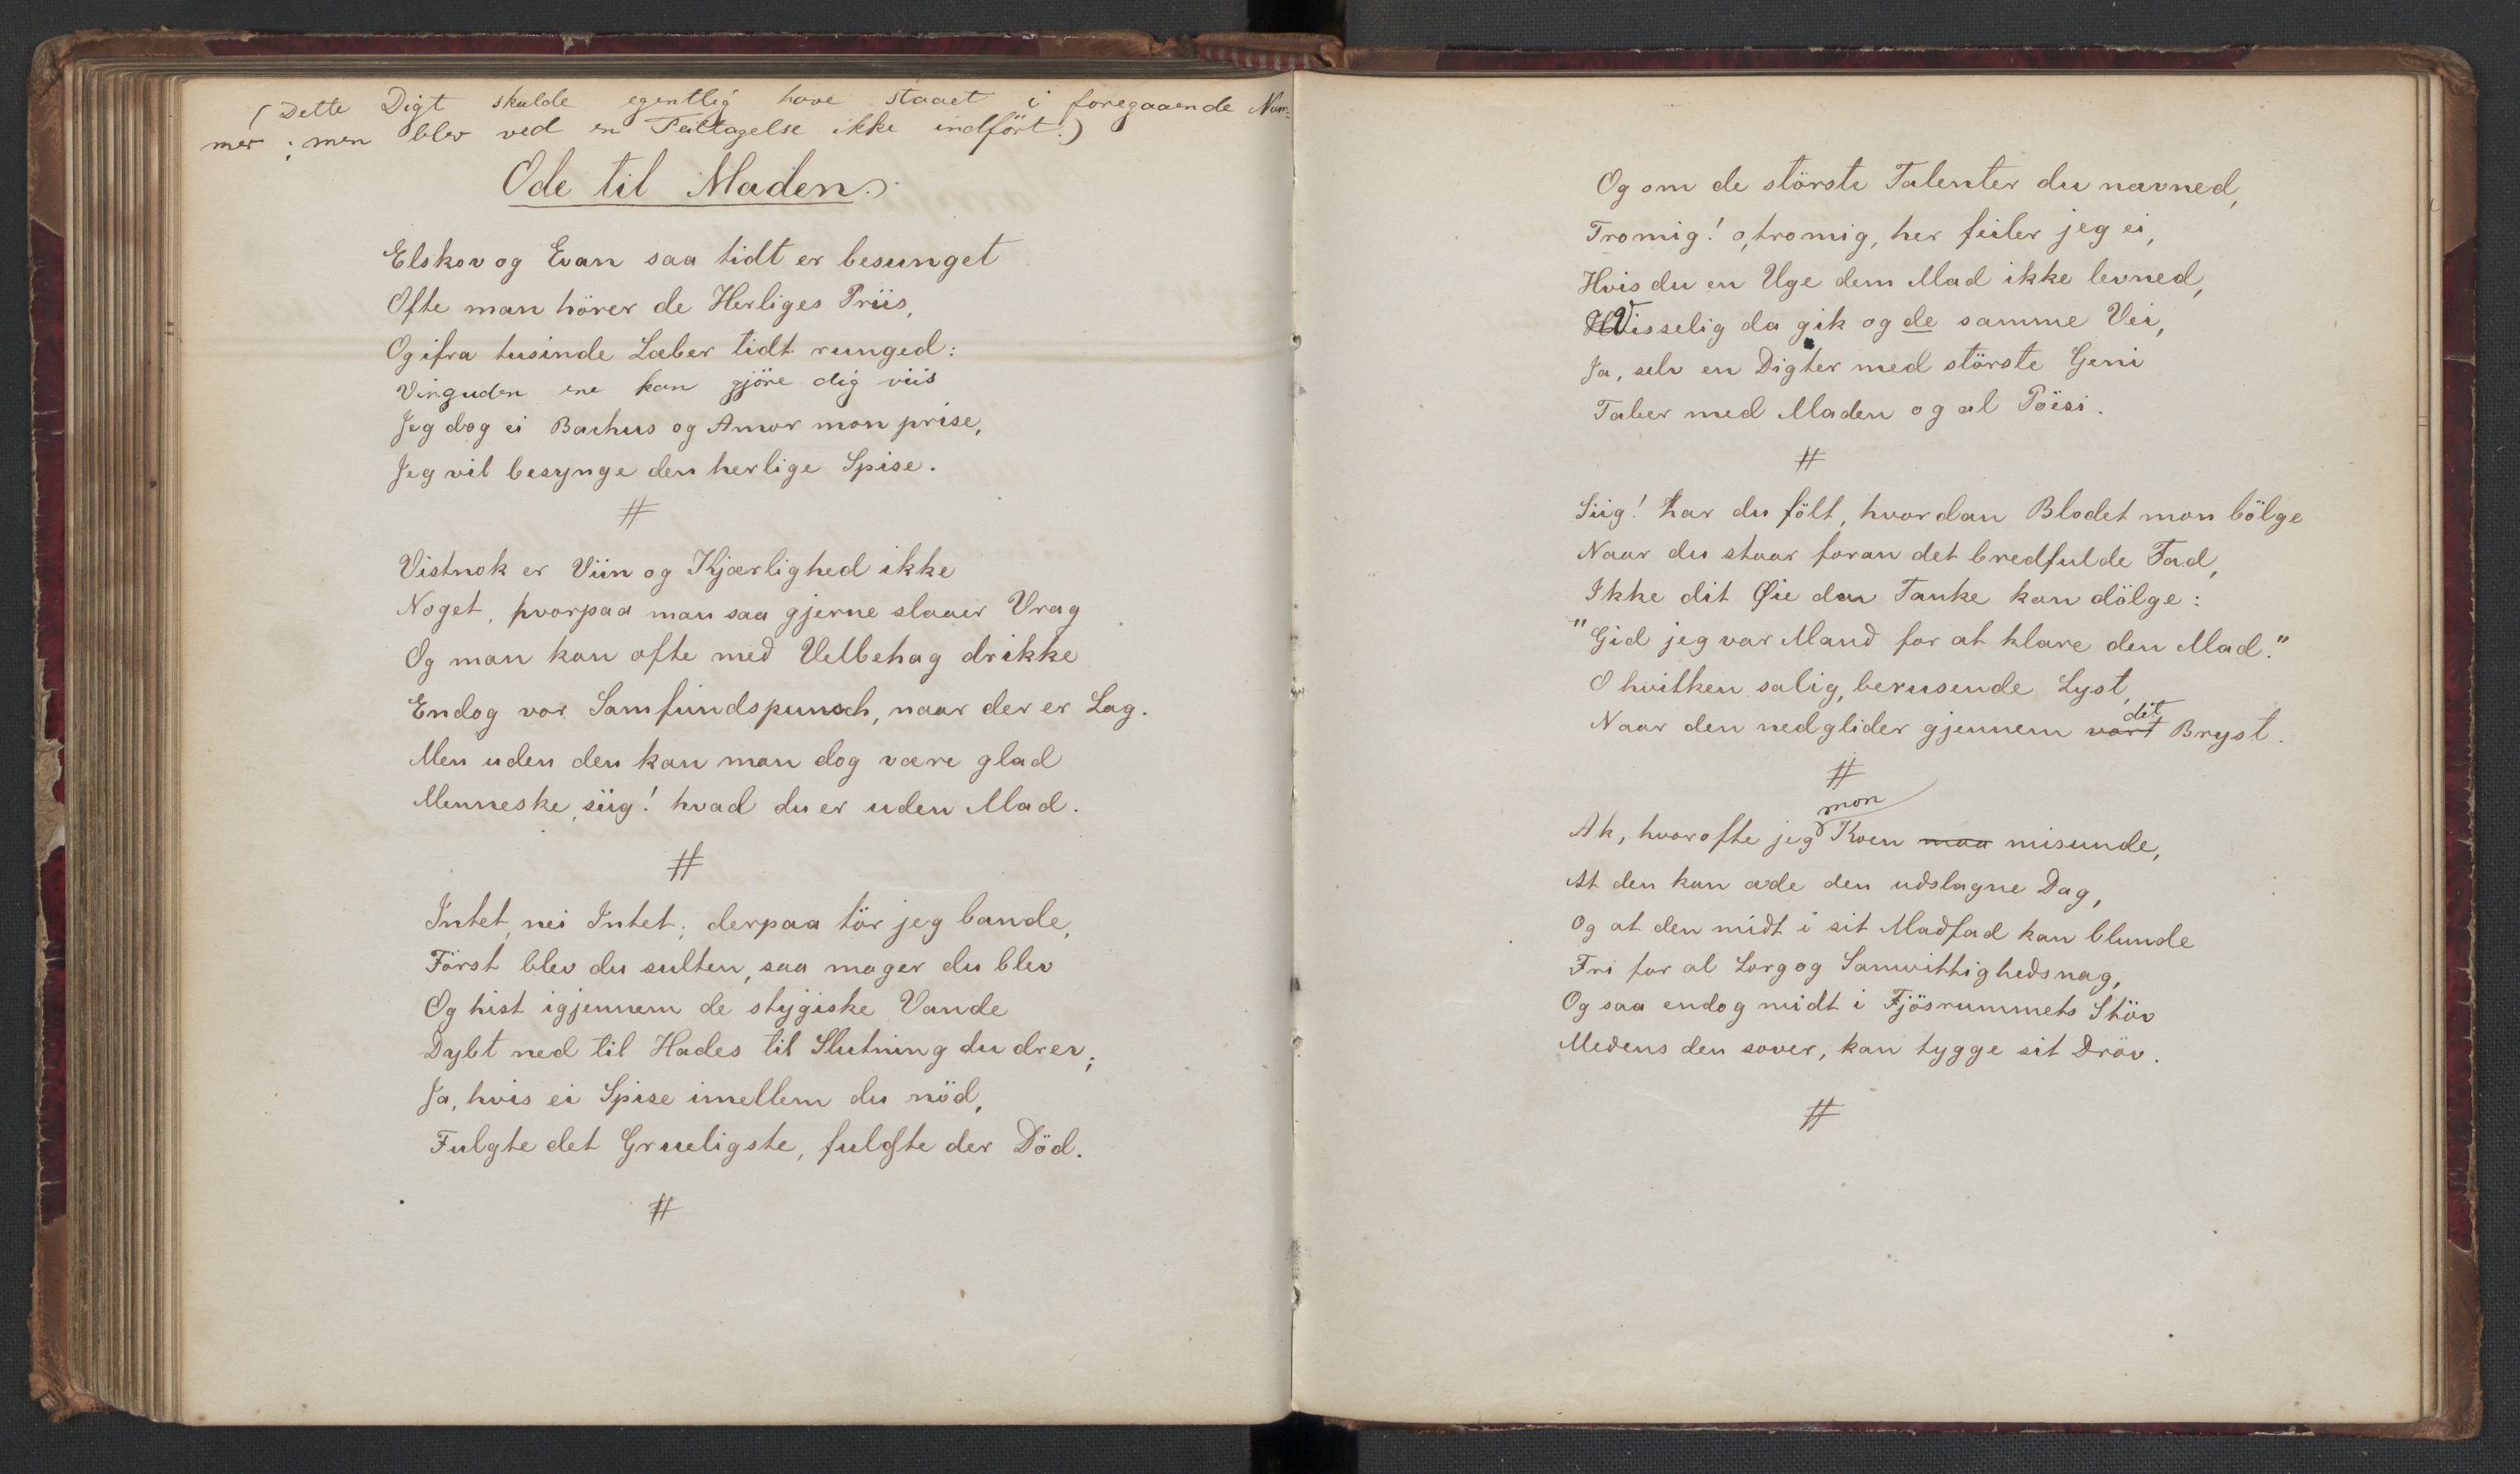 (Dette Digt skulde egentlig have staaet i foregaaende Num-
mer; men blev ved en Feiltagelse ikke indfört.)
Ode til Maden.
Elskov og Evan saa tidt er besunget
Ofte man hörer de Herliges Priis,
Og ifra tusinde Læber tidt runged:
Vinguden ene kan gjöre dig viis
Jeg dog ei Bachus og Amor mon prise,
Jeg vil besynge den herlige Spise.
#
Vistnok er Viin og Kjærlighed ikke
Noget, hvorpaa man saa gjerne slaaer Vrag
Og man kan ofte med Velbehag drikke
Endog vor Samfundspunsch, naar der er Lag.
Men uden den kan man dog være glad
Menneske, siig! hvad du er uden Mad.
#
Intet, nei Intet; derpaa tör jeg bande,
Först blev du sulten, saa mager du blev
Og hist igjennem de stygiske Vande
Dybt ned til Hades til Slutning du drev;
Ja, hvis ei Spise imellem du nöd,
Fulgte det Grueligste, fulgte der Död.
#
Og om de störste Talenter du nævned,
Tromig! o, tromig, her feiler jeg ei,
Hvis du en Uge dem Mad ikke levned,
Visselig da gik og de samme Vei,
Ja, selv en Digter med störste Geni
Taber med Maden og al Poësi.
#
Siig! har du fölt, hvordan Blodet mon bölge
Naar du staar foran det bredfulde Fad,
Ikke dit Øie den Tanke kan dölge:
"Gid jeg var Mand for at klare den Mad."
O hvilken salig, berusende Lyst,
Naar den nedglider gjennem vort dit Bryst.
#
Ak, hvor ofte jeg mon Koen maa misunde,
At den kan æde den udslagne Dag,
Og at den midt i sit Madfad kan blunde
Fri for al Sorg og Samvittighedsnag,
Og saa endog midt i Fjösrummets Stöv
Medens den sover, kan tygge sit Dröv.
#